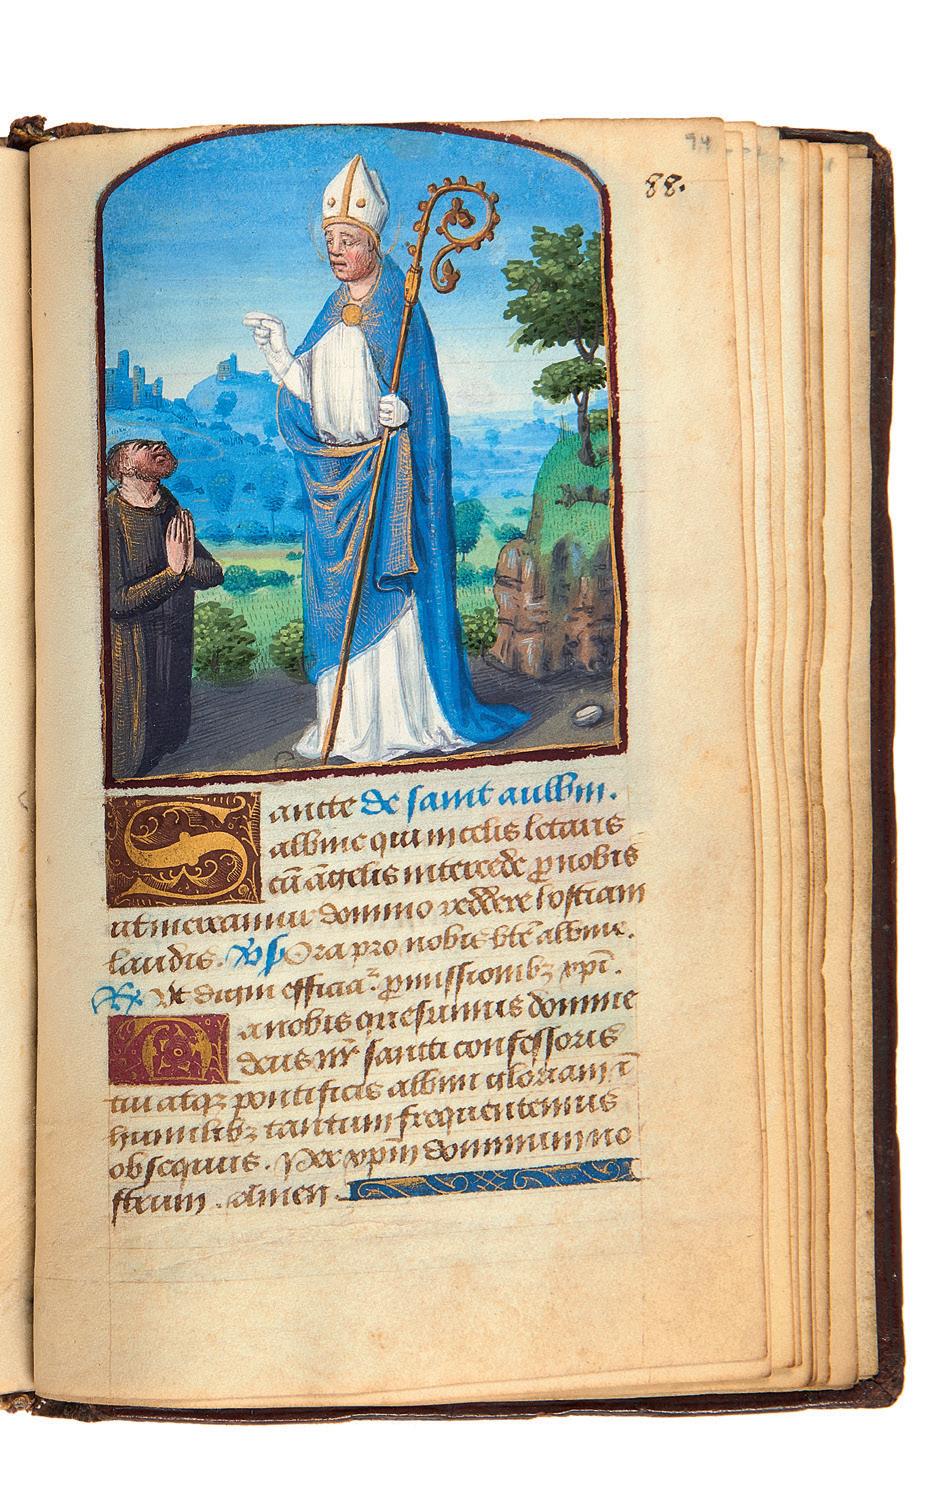 94
88.
Sancte de saint aulbin.
albine qui in celis letaris
cū āgelis intercede p̱ nobis
ut mereamur domino reddere hostiam
laudis. V̷s Ora pro nobis bt̄e albine.
R̷x Ut digni efficiaꝭ p̱missionibꝫ xpi̅.
Da nobis quesumus domine
deus nr̄ sancti confessoris
tui atqꝫ pontificis albini gloriam ī
humilibꝫ tantum frequentemus
obsequiis. Per xpm̄ dominum no
strum. Amen.